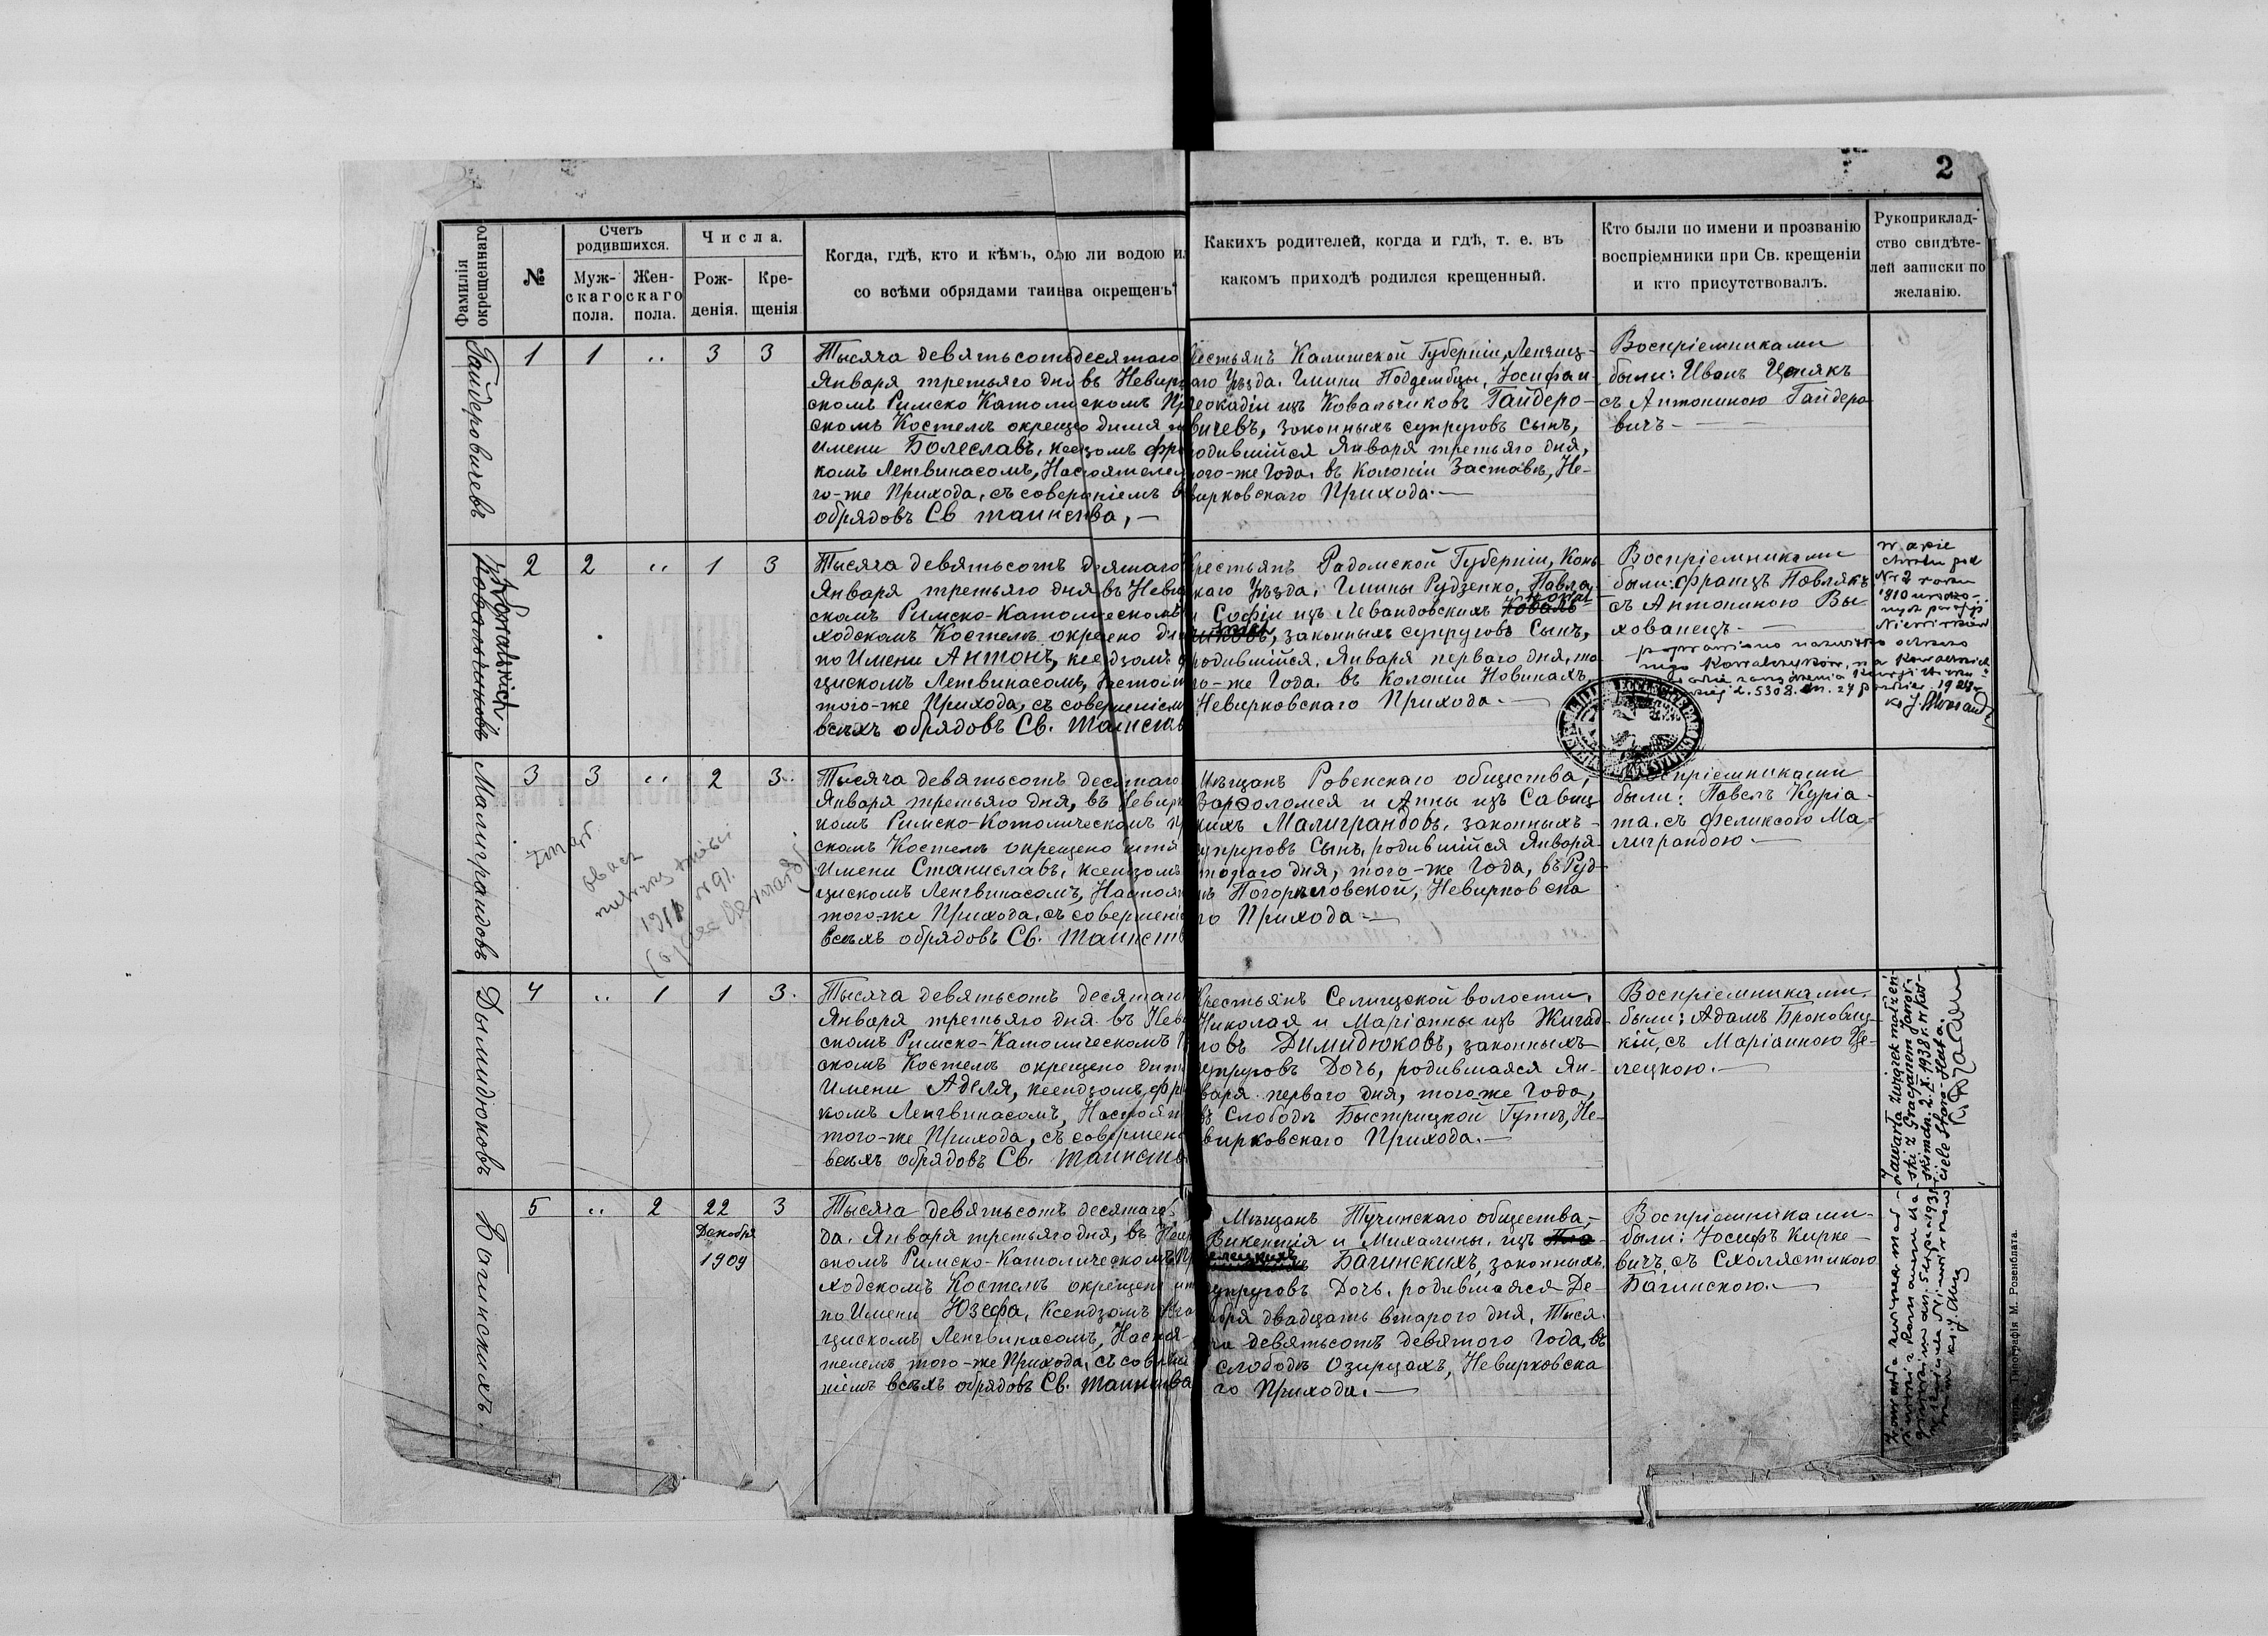 2
Фамилія окрещеннаго
№
Счетъ родившихся.
Муж-
скаго
пола.
Жен-
скаго
пола.
Числа.
Рож-
денія.
Кре-
щенія
Когда, гдѣ, кто и кѣмъ, одою ли водою и
со всѣми обрядами таинва окрещенъ
Какихъ родителей, когда и гдѣ, т. е. въ
какомъ приходѣ родился крещенный.
Кто были по имени и прозванію
воспріемники при Св. крещеніи
и кто присутствовалъ.
Рукоприклад-
ство свидѣте-
лей записки по
желанію.
Гайдеровичевъ
1 1 " 3 3
Тысяча девятьсотъ десятаго
Января третьяго дня въ Невирк
скомъ Римско Католическомъ Пр
скомъ Костелѣ окрещено дитя по
имени Болеславъ, ксендзомъ Фра
комъ Ленгвинасомъ, Настоятелем
го-же Прихода, съ совершеніемъ в
обрядовъ Св таинства, —
рестьянъ Калишской Губерніи, Ленчиц-
каго Уѣзда, Гмины Поддембцы, Іосифа и
Леокадіи изъ Ковальчиковъ Гайдеро-
вичевъ, законныхъ супруговъ сынъ,
родившійся Января третьяго дня,
того-же Года, въ Колоніи Заставѣ, Не-
вирковскаго Прихода. —
Воспріемниками
были: Иванъ
съ Антониною Гайдеро
вичъ —
Ковальчиковъ
Kowalskich
2 2 " 1 3
Тысяча девятьсотъ десятаго
Января третьяго дня въ Неви
скомъ Римско-Католическомъ
ходскомъ Костелѣ окрещено ди
по Имени Антонъ, ксендзомъ ф
цискомъ Ленгвинасомъ, Настоят
того-же Прихода, съ совершеніем
всѣхъ обрядовъ Св. Таинств
Крестьянъ Радомской Губерніи, Конь
скаго Уѣзда, Гмины Рудзенко, Павла
и Софіи изъ Левандовскихъ Коваль
чиковъ, законныхъ супруговъ Сынъ,
родившійся, Января перваго дня, то
го-же Года, въ Колоніи Новинахъ,
Невирковскаго Прихода. —
Воспріемниками
были: Францъ Павлякъ
съ Антониною Вы
хованецъ —
w akcie
chrztu pod
Nr 2 roku
1910
parafji
poprawiono nazwisko
nego Kowalczyków, na Kowalskich
L. 5308. dn. 24
Малиграндовъ
3 3 " 2 3
Тысяча девятьсотъ десятаго
Января третьяго дня, въ Невирк
комъ Римско-Католическомъ п
скомъ Костелѣ окрещено дитя
Имени Станиславъ, ксендзомъ
цискомъ Ленгвинасомъ, Настоят
того-же Прихода, съ совершені
всѣхъ обрядовъ Св. Таинств
Мѣщанъ Ровенскаго общества,
Варфоломея и Анны изъ Савиц
кихъ Малиграндовъ, законныхъ
супруговъ Сынъ, родившійся Января
втораго дня, того-же Года, въ Руд-
нѣ Погорѣловской, Невирковска
го Прихода —
Воспріемниками
были: Павелъ Куріа-
та, съ Феликсою Ма-
лиграндою. —
Дымидюковъ
4 " 1 1 3.
Тысяча девятьсотъ десятаго
Января третьяго дня въ Неви
скомъ Римско-Католическомъ
скомъ Костелѣ окрещено дитя
Имени Аделя, ксендзомъ Фр
комъ Ленгвинасомъ, Настоят
того-же Прихода, съ совершен
всѣхъ обрядовъ Св. Таинства
Крестьянъ Селищской волости,
Николая и Маріанны изъ Жигад-
ловъ Димидюковъ, законныхъ
супруговъ Дочь, родившаяся Ян-
варя перваго дня, тогоже Года,
въ Слободѣ Быстрицкой Гутѣ, Не-
вирковскаго Прихода. —
Воспріемниками
были: Адамъ Броновиц-
кій, съ Маріанною Це-
лецкою. —
Zawarła związek małżeń-
ski z Gracjanem Jawor-
skim dn. 2.X. 1938 r. w Koś-
ciele Stara-Huta.
Багинскихъ
5 " 2 22 3
Декабря
1909
Тысяча девятьсотъ десятаго
да, Января третьяго дня, въ Невир
скомъ Римско-Католическомъ Пр
ходскомъ Костелѣ окрещено дит
по Имени Юзефа, Ксендзомъ Фра
цискомъ Ленгвинасомъ, Настоя-
телемъ того-же Прихода, съ соверше
ніемъ всѣхъ обрядовъ Св. Таинства
Мѣщанъ Тучинскаго общества,
Викентія и Михалины, изъ
Багинскихъ, законныхъ
супруговъ Дочь, родившаяся Де-
кабря двадцать втораго дня, Тыся-
ча девятьсотъ девятого Года, въ
слободѣ Озирцахъ, Невирковска
го Прихода. —
Воспріемниками
были: Іосифъ Кирке-
вичъ, съ Схолястикою
Багинскою. —
Типографія М. Розенблата.